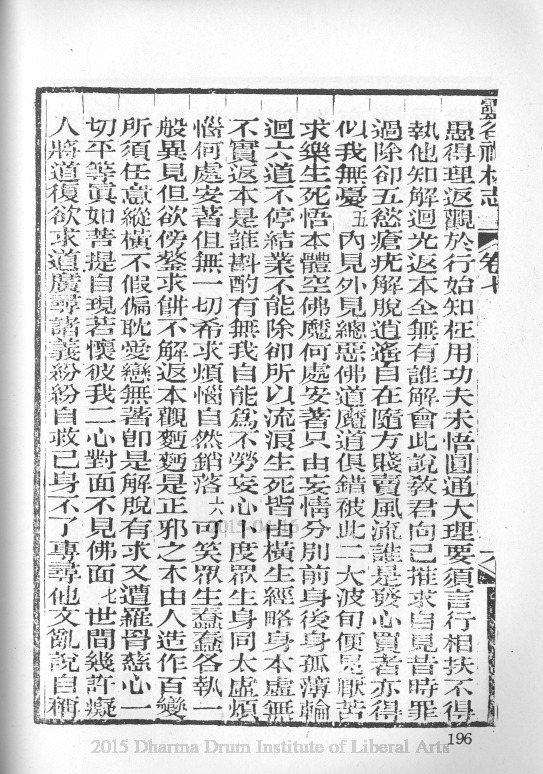 愚得理返觀於行始知枉用功夫未悟圓通大理要須言行相扶不得
執他知解迴光返本全無有誰解會此說教君向己推求自見昔時罪
過除卻五慾瘡疣解脫逍遙自在隨方賤賣風流誰是發心買者亦得
似我無憂五內見外見總惡佛道魔道俱錯被此二大波旬便見厭苦
求樂生死悟本體空佛魔何處安著只由妄情分別前身後身孤薄輪
迴六道不停結業不能除卻所以流浪生死皆由橫生經略身本虛無
不實返本是誰斟酌有無我自能為不勞妄心卜度眾生身同太虛煩
惱何處安著但無一切希求煩惱自然銷落六可笑眾生蠢蠢各執一
般異見但欲傍鏊求餅不解返本觀麪麪是正邪之本由人造作百變
所須任意縱橫不假偏耽愛戀無著卽是解脫有求又遭羅罥慈心一
切平等眞如菩提自現若懷彼我二心對面不見佛面七世間幾許癡
人將道復欲求道廣尋諸義紛紛自救己身不了專尋他文亂說自稱
卷七
196
2015 Dharma Drum Institute of Liberal Arts